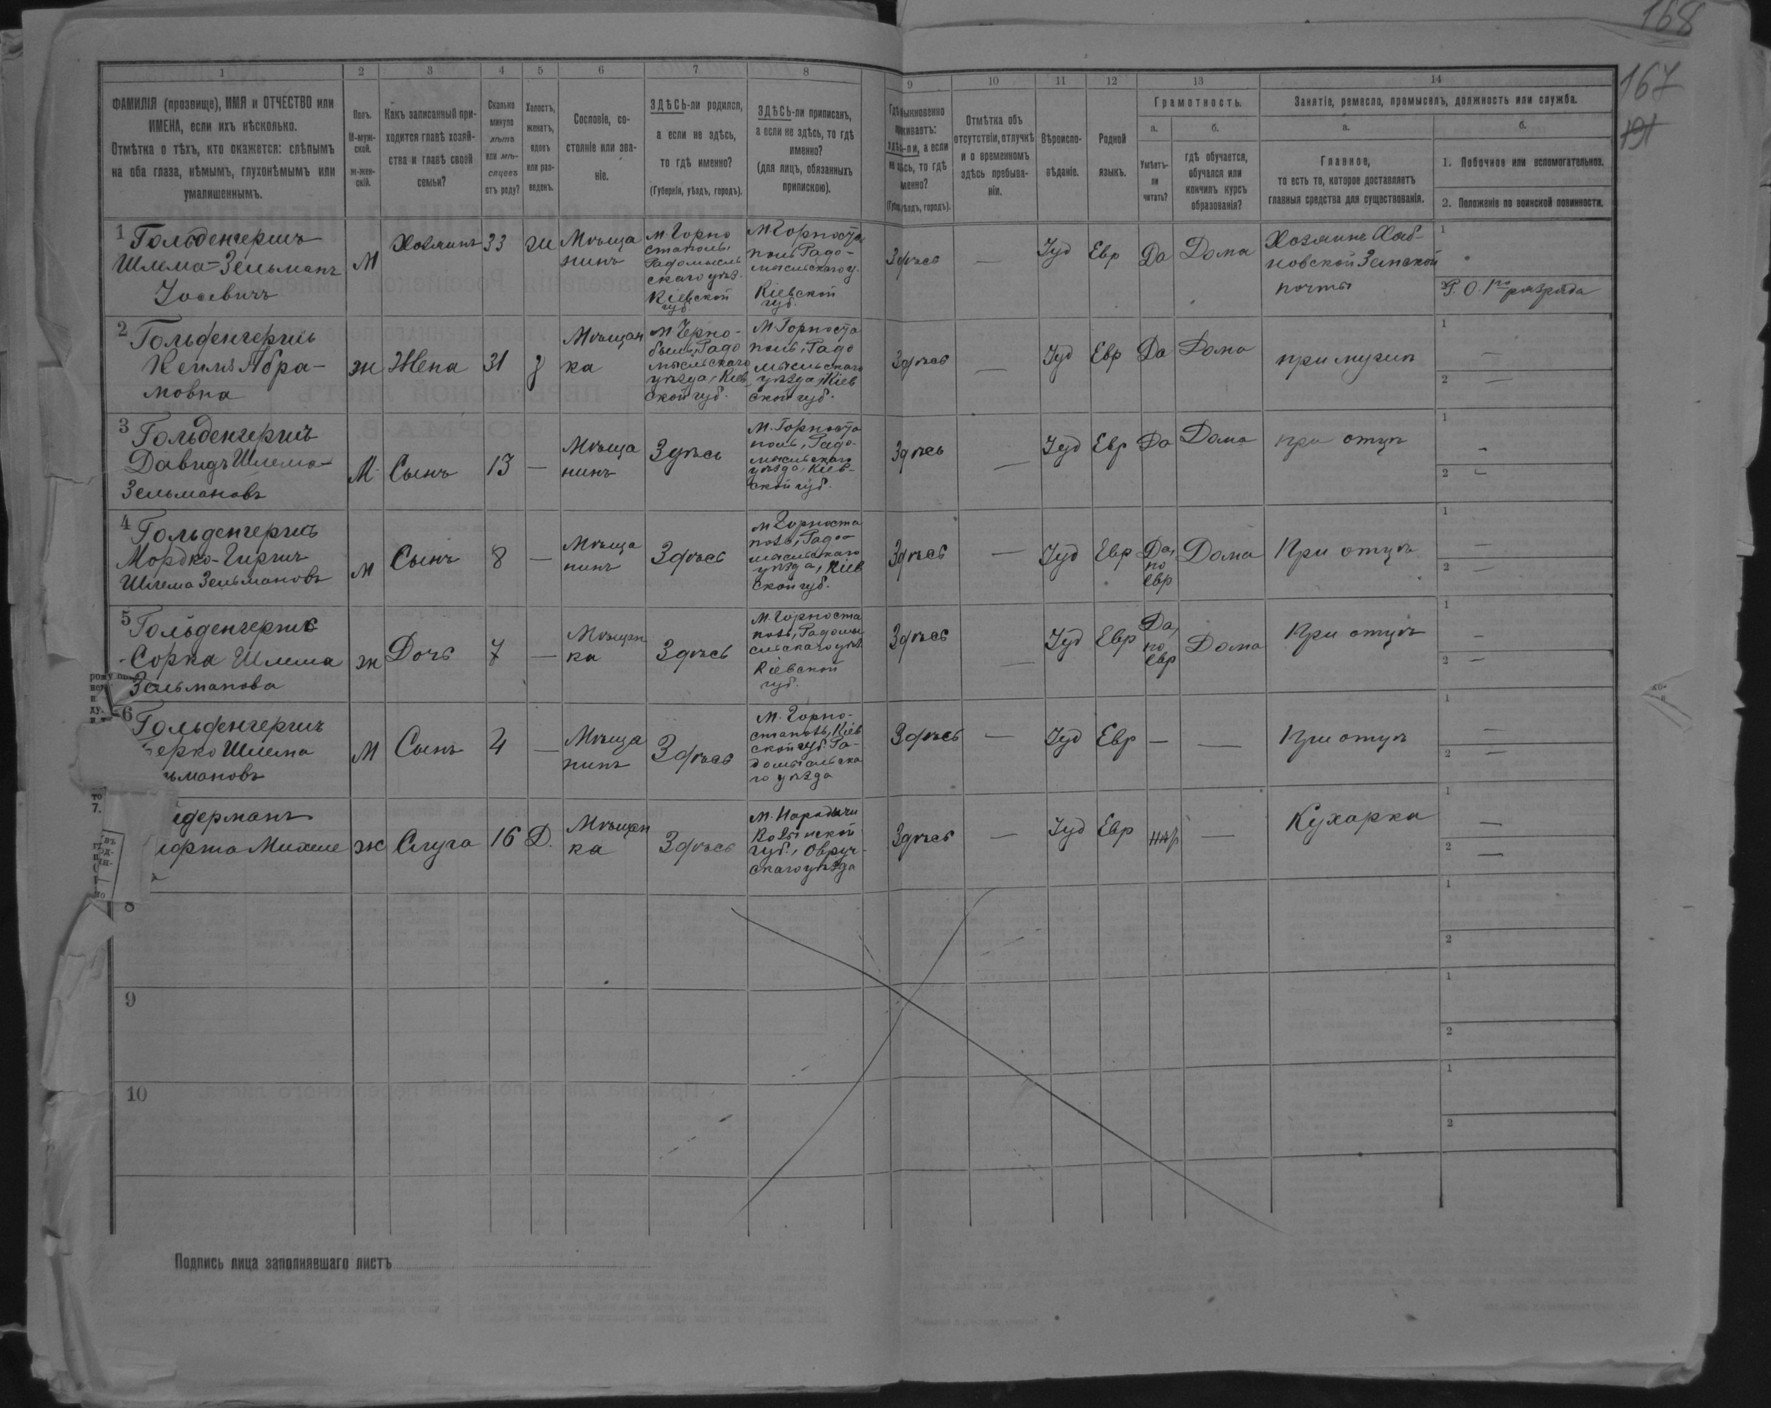 168
167
191
1
2
3
4
5
6
7
8
9
10
11
12
13
14
ФАМИЛІЯ (прозвище), ИМЯ и ОТЧЕСТВО или
ИМЕНА, если ихъ нѣсколько.
Отмѣтка о тѣхъ, кто окажется: слѣпымъ
на оба глаза, нѣмымъ, глухонѣмымъ или
умалишеннымъ.
Полъ.
М-муж-
ской.
Ж-жен-
скій.
Какъ записанный при-
ходится главѣ хозяй-
ства и главѣ своей
семьи?
Сколько
минуло
лѣтъ
или мѣ-
сяцевъ
отъ роду?
Холостъ,
женатъ,
вдовъ
или раз-
веденъ.
Сословіе, со-
стояніе или зва-
ніе.
ЗДѢСЬ-ли родился,
а если не здѣсь,
то гдѣ именно?
(Губернія, уѣздъ, городъ).
ЗДѢСЬ-ли приписанъ,
а если не здѣсь, то гдѣ
именно?
(для лицъ, обязанныхъ
припискою).
-ли, а если
то гдѣ
уѣздъ, городъ).
Отмѣтка объ
отсутствіи, отлучкѣ
и о временномъ
здѣсь пребыва-
ніи.
Вѣроиспо-
вѣданіе.
Родной
языкъ.
Грамотность.
а.
Умѣетъ-
ли
читать?
б.
гдѣ обучается,
обучался или
кончилъ курсъ
образованія?
Занятіе, ремесло, промыселъ, должность или служба.
а.
Главное,
то есть то, которое доставляетъ
главныя средства для существованія.
б.
1. Побочное или вспомогательное.
2. Положеніе по воинской повинности.
1
Гольденгершъ
Шлема-Зельманъ
Іосевичъ
М
Хозяинъ
33
ж
Мѣща
нинъ
м. Горно
стаполь,
Радомысль
скаго уѣз.
Кіевской
губ.
М Горноста
поль Радо-
мысльскаго у.
Кіевской
губ.
Здѣсь
—
Іуд
Евр
Да
Дома
Хозяинъ Хаб-
новской Земской
почты
1
2 Р. О. 1го разряда
2
Гольденгершъ
Абра-
мовна
ж
Жена
31
з
Мѣщан
ка
м Черно-
быль, Радо
мысльскаго
уѣзда, Кіев
ской губ.
М. Горноста
поль, Радо
мысльскаго
уѣзда, Кіев
ской губ.
Здѣсь
—
Іуд
Евр
Да
Дома
при мужѣ
1 —
2 —
3
Гольденгершъ
Давидъ Шлема-
Зельмановъ
М.
Сынъ
13
—
Мѣща
нинъ
Здѣсь
М. Горноста
поль, Радо-
мысльскаго
уѣзда, Кіев-
ской губ.
Здѣсь
—
Іуд
Евр
Да
Дома
при отцѣ
1 —
2 —
4
Гольденгершъ
Мордко-Гиршъ
Шлема Зельмановъ
М
Сынъ
8
—
Мѣща
нинъ
Здѣсь
м Горноста
поль, Радо-
мысльскаго
уѣзда, Кіев
ской губ.
Здѣсь
—
Іуд
Евр
Да,
по
Евр
Дома
При отцѣ
1 —
2 —
5
Гольденгершъ
Сорка Шлема
Зельманова
ж
Дочь
7
—
Мѣщан
ка
Здѣсь
М. Горноста
поль, Радомы
сльскаго уѣз.
Кіевской
губ.
Здѣсь
—
Іуд
Евр
Да,
по
Евр
Дома
При отцѣ
1 —
2 —
6
Гольденгершъ
ерко Шлема
ьмановъ
М
Сынъ
4
—
Мѣща
нинъ
Здѣсь
М. Горно-
стаполь, Кіев
ской губ. Ра-
домысльска
го уѣзда
Здѣсь
—
Іуд
Евр
—
—
При отцѣ
1 —
2 —
7.
дерманъ
ж
Слуга
16
Д.
Мѣщан
ка
Здѣсь
М. Народичи
Волынской
губ., Овруч-
скаго уѣзда
Здѣсь
—
Іуд
Евр
—
Кухарка
1 —
2 —
8
1
2
9
1
2
10
1
2
Подпись лица заполнявшаго листъ